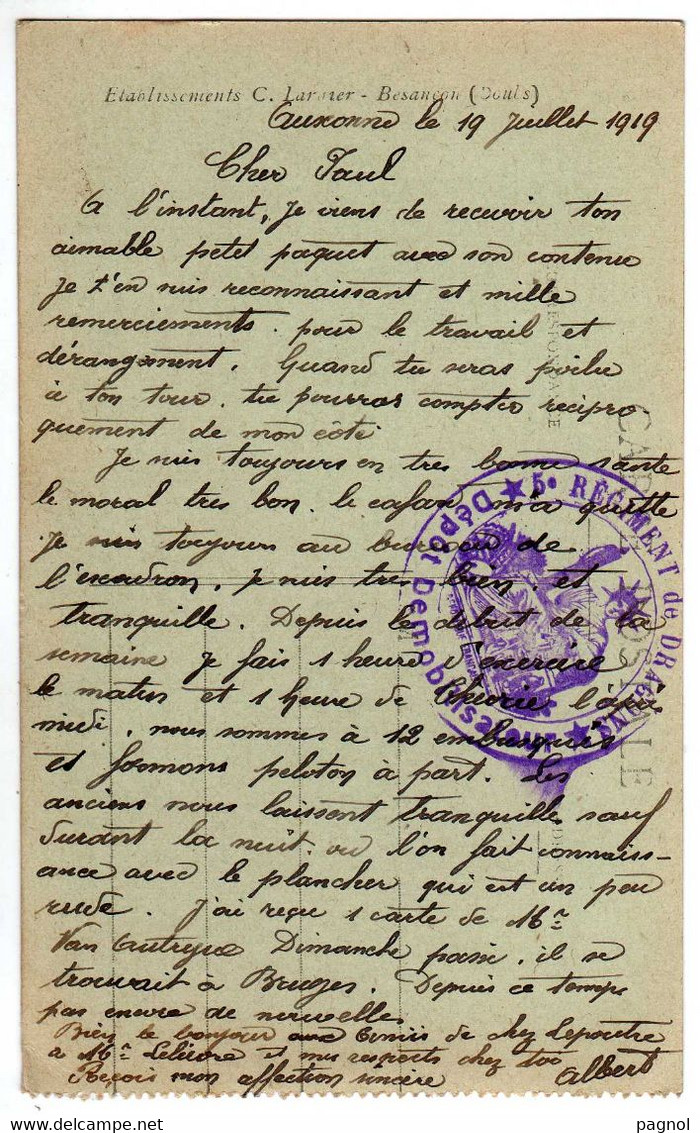 Etablissements C. Lardier - Besançon (Doubs)
Auxonne le 19 Juillet 1919
Cher Paul
A l'instant, je viens de recevoir ton
aimable petit paquet avec son contenu
Je t'en suis reconnaissant et mille
remerciements. pour le travail et
dérangement. Quand tu seras poilu
à ton tour. tu pourras compter recipro
quement de mon côté
Je suis toujours en tres bonne sante
le moral tres bon. le cafard m'a quitté
Je suis toujours au bureau de
l'escadron, Je suis tres bien et
tranquille. Depuis le debut de la
semaine Je fais 1 heure d'exercice
le matin et 1 heure de theorie l'après
midi, nous sommes à 12 embusqués
et formons peloton à part. Les
anciens nous laissent tranquille sauf
durant la nuit. ou l'on fait connaiss-
ance avec le plancher qui est un peu
rude. J'ai reçu 1 carte de Mr
Van Dimanche passé, il se
trouvait à Bruges. Depuis ce temps
pas encore de nouvelles
Bien le bonjour aux Amis de chez Lepoutre
à Mr et mes respects chez toi
Reçois mon affection sincère Albert
CARTE POSTALE
CORRESPONDANCE
5e REGIMENT de DRAGONS
Dépôt Démobilisateur
pagnol